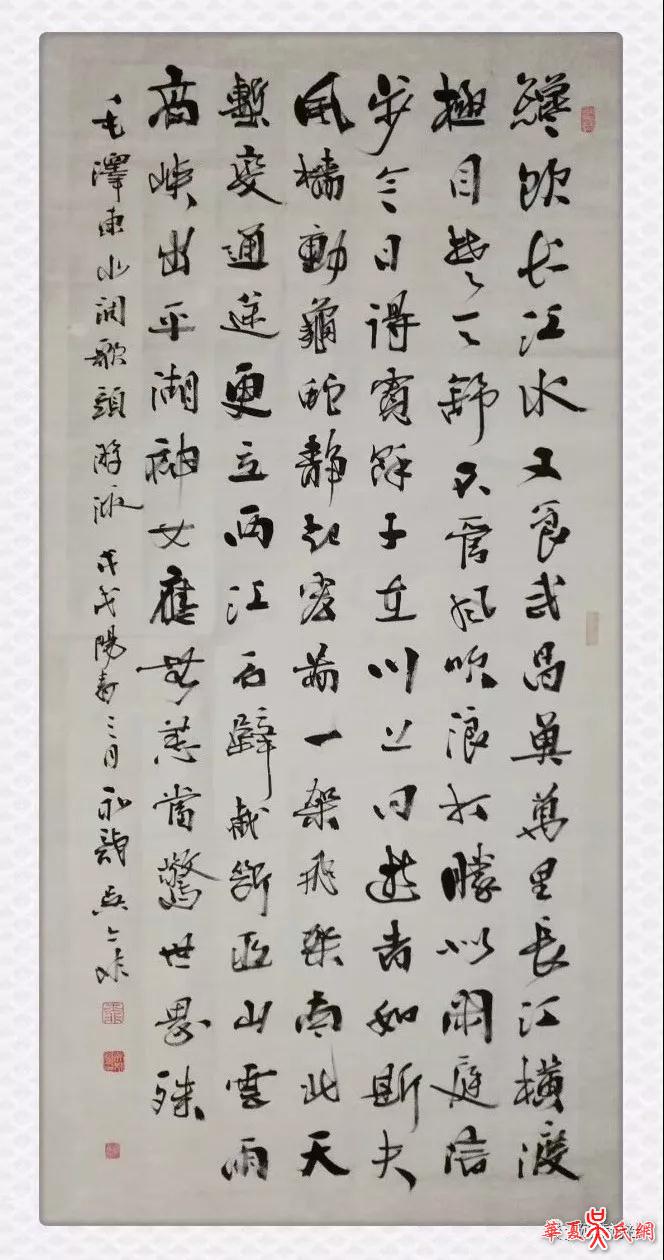 纔飲长江水又食武昌魚萬里長江橫渡
極目楚天舒不管風吹浪打勝似閑庭信
步今日得寬餘子在川上曰逝者如斯夫
風檣動龜蛇靜起宏圖一架飛架南北天
塹變通途更立西江石壁截斷巫山雲雨
高峽出平湖神女應無恙當驚世界殊
毛澤東水調歌頭游泳 戊戌陽春三月
華夏吳氏網